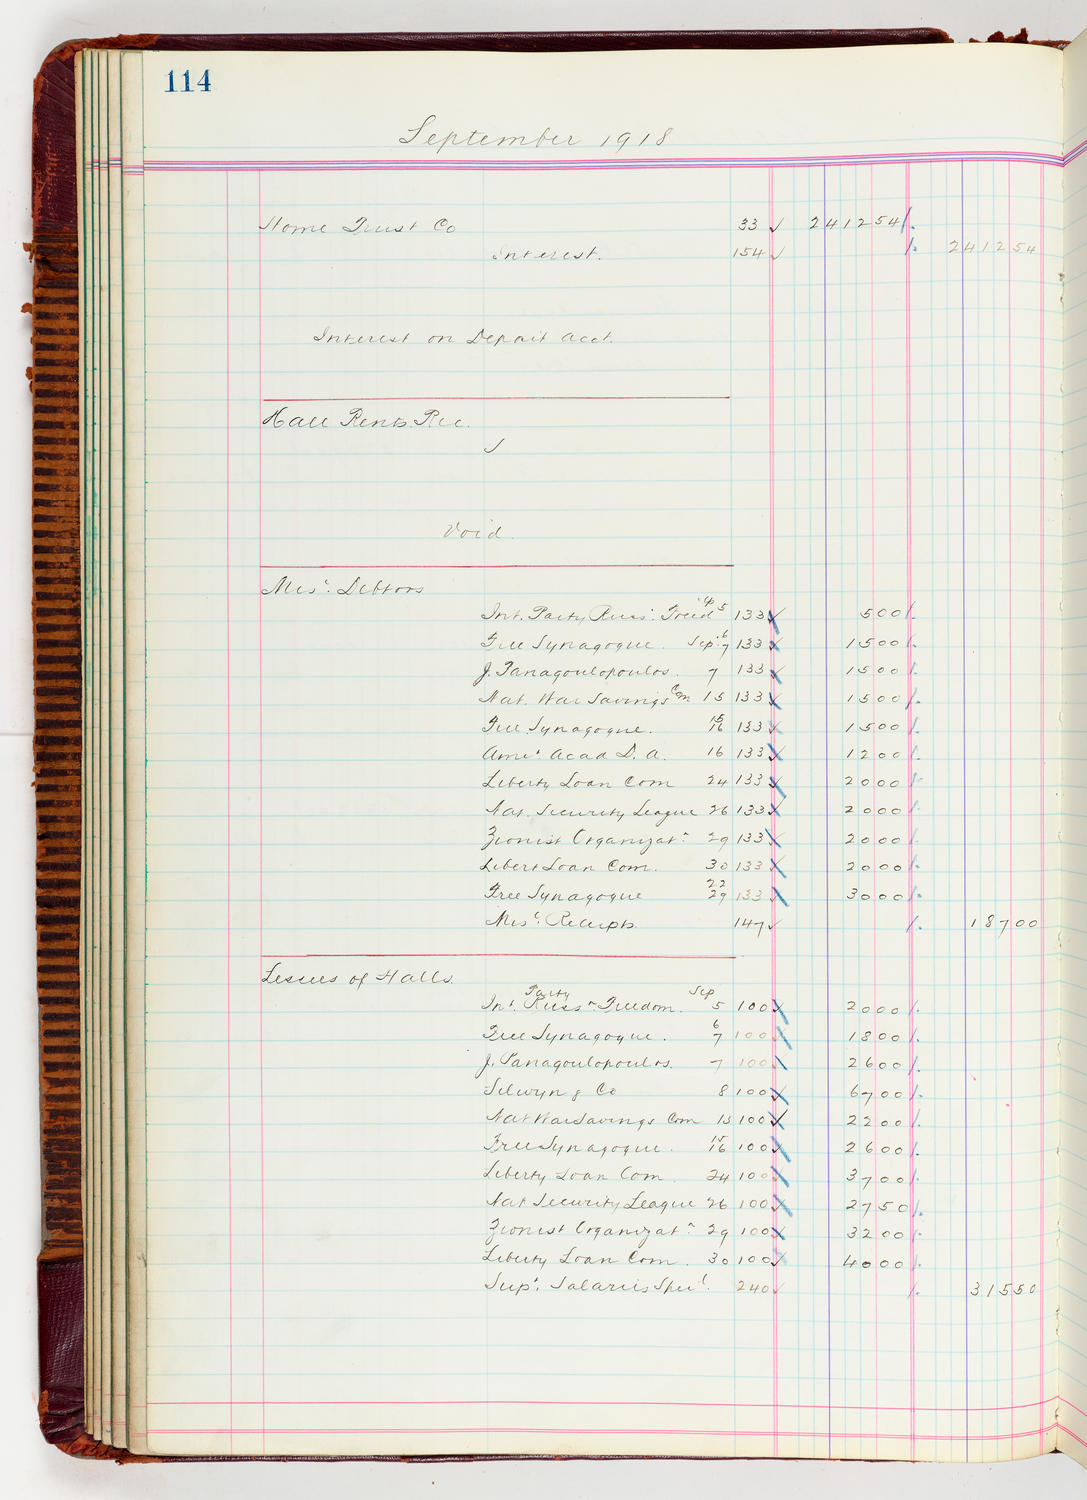 114
September 1918
Home Trust Co 33 ✓ 241254
Interest. 154 ✓ 241254
Interest on Deposit acct.
Hall Rents Rec.
✓
Void.
Misc. Debtors
Int. Party Russ. Freed Sep 5 133 500
Free Synagogue. Sep. 6 7 133 1500
J. Panagoulopoulos. 7 133 1500
Nat. War Savings Com 15 133 1500
Free Synagogue. 15 16 133 1500
Amer. Acad D. A. 16 133 1200
Liberty Loan Com 24 133 2000
Nat. Security League 26 133 2000
Zionist Organizatn. 29 133 2000
Libert Loan Com. 30 133 2000
Free Synagogue 22 29 133 3000
Misc. Receipts 147 ✓ 18700
Lessees of Halls.
Int. Party Russn Freedom. Sep 5 100 2000
Free Synagogue. 6 7 100 1800
J. Panagoulopoulos. 7 100 2600
Selwyn & Co 8 100 6700
Nat War Savings Com 15 100 2200
Free Synagogue. 15 16 100 2600
Liberty Loan Com. 24 100 3700
Nat Security League 26 100 2750
Zionist Organizatn. 29 100 3200
Liberty Loan Com. 30 100 4000
Supt. Salaries Specl. 240 ✓ 31550